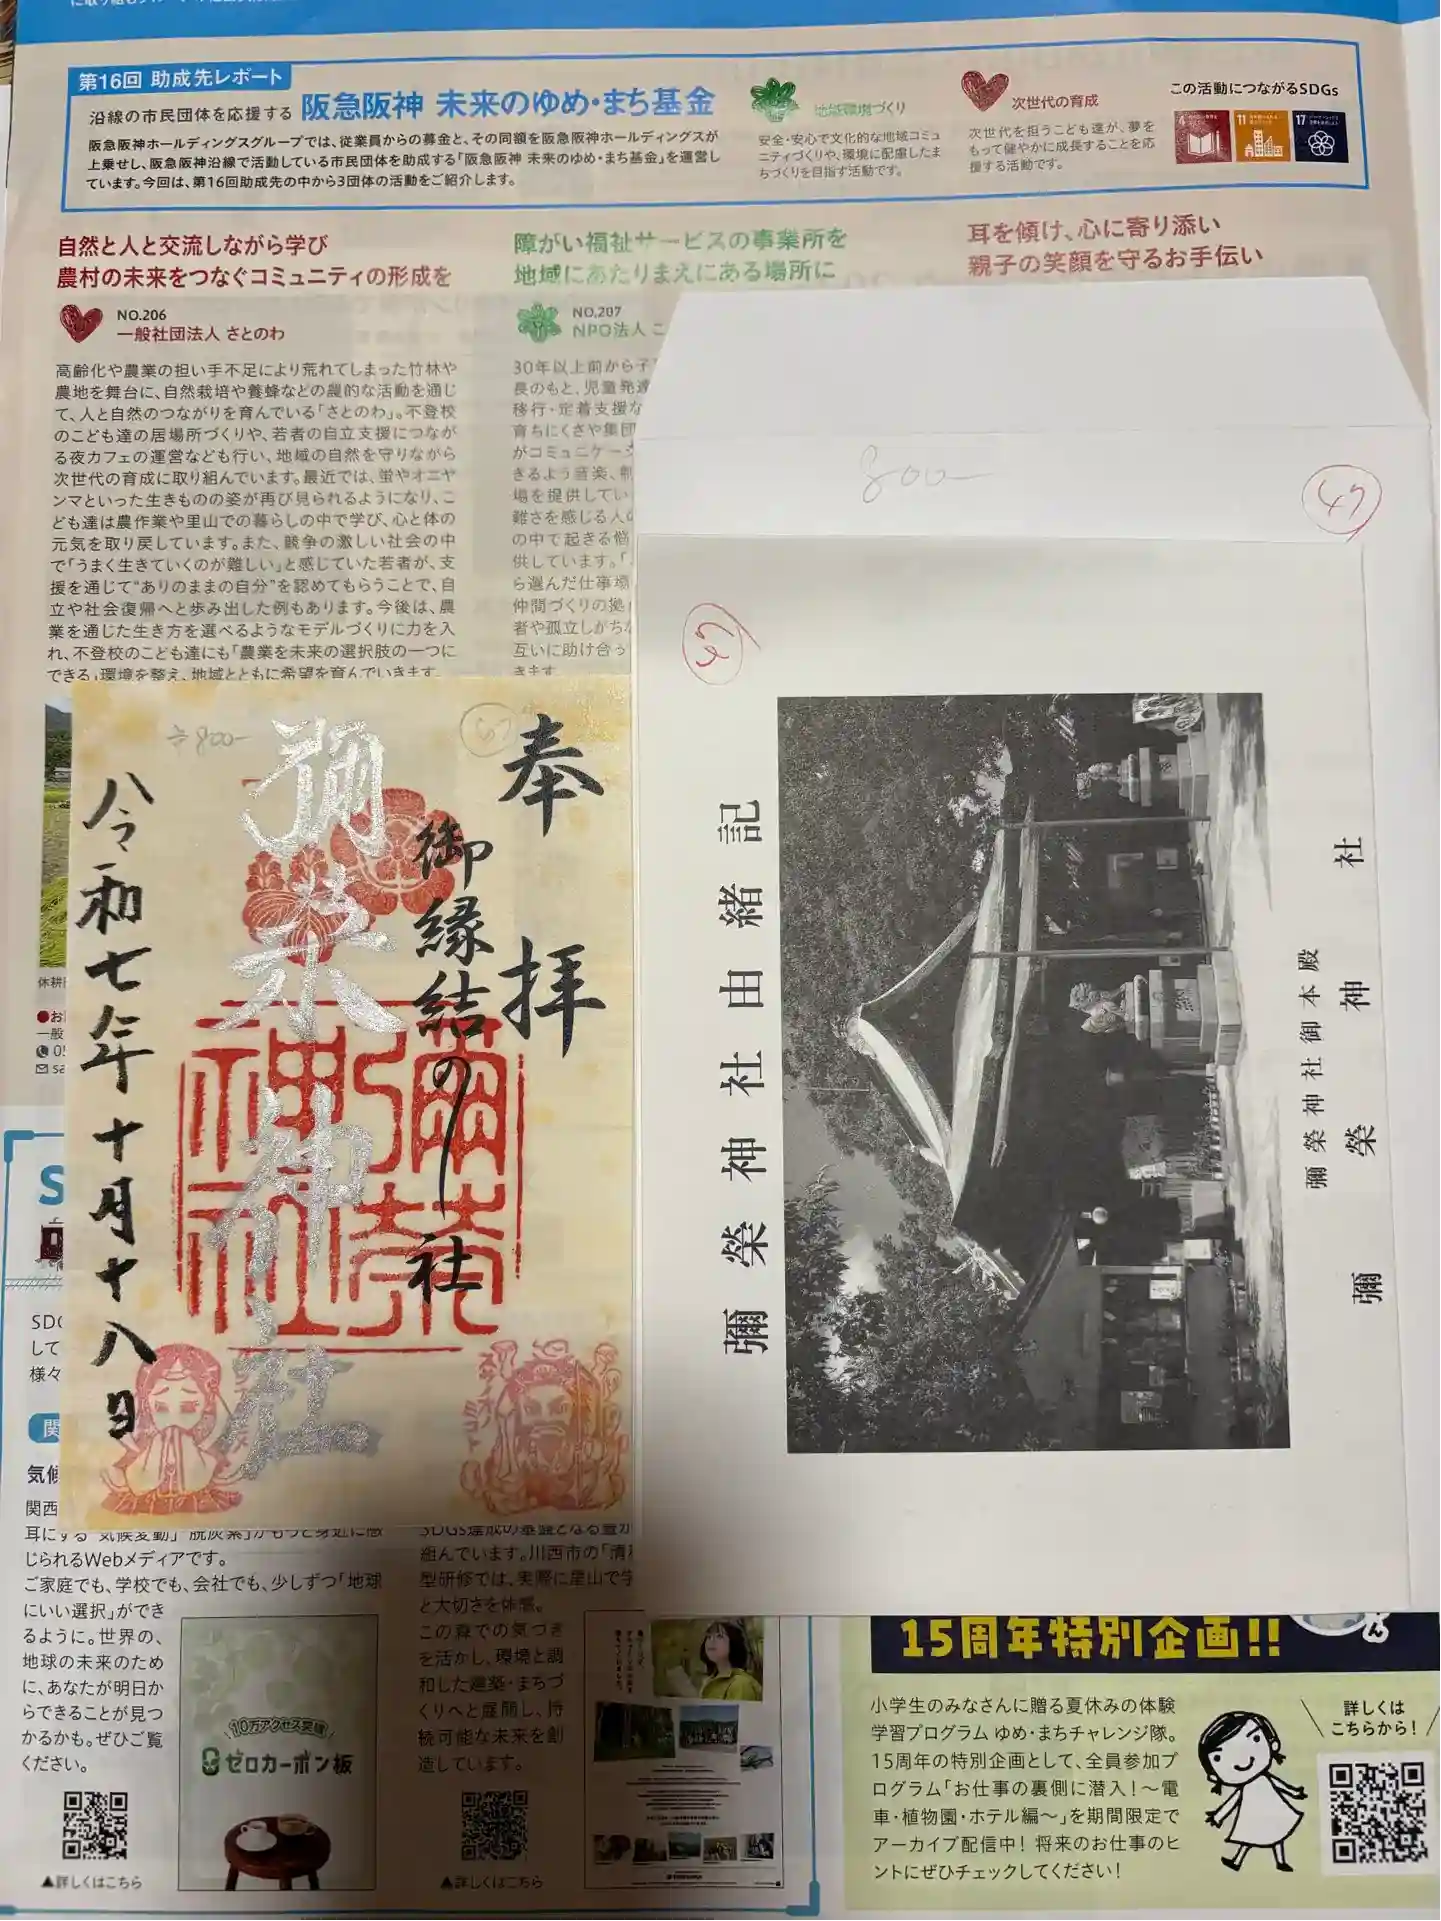 第16回 助成先レポート
沿線の市民団体を応援する 阪急阪神 未来のゆめ・まち基金
阪急阪神ホールディングスグループでは、従業員からの募金と、その同額を阪急阪神ホールディングスが
上乗せし、阪急阪神沿線で活動している市民団体を助成する「阪急阪神 未来のゆめ・まち基金」を運営し
ています。今回は、第16回助成先の中から3団体の活動をご紹介します。
地域環境づくり
安全・安心で文化的な地域コミュ
ニティづくりや、環境に配慮したま
ちづくりを目指す活動です。
次世代の育成
次世代を担うこども達が、夢を
もって健やかに成長することを応
援する活動です。
この活動につながるSDGs
4
11
17
自然と人と交流しながら学び
農村の未来をつなぐコミュニティの形成を
NO.206
一般社団法人 さとのわ
高齢化や農業の担い手不足により荒れてしまった竹林や
農地を舞台に、自然栽培や養蜂などの農的な活動を通じ
て、人と自然のつながりを育んでいる「さとのわ」。不登校
のこども達の居場所づくりや、若者の自立支援につなが
る夜カフェの運営なども行い、地域の自然を守りながら
次世代の育成に取り組んでいます。最近では、蛍やオニヤ
ンマといった生きものの姿が再び見られるようになり、こ
ども達は農作業や里山での暮らしの中で学び、心と体の
元気を取り戻しています。また、競争の激しい社会の中
で「うまく生きていくのが難しい」と感じていた若者が、支
援を通じて“ありのままの自分”を認めてもらうことで、自
立や社会復帰へと歩み出した例もあります。今後は、農
業を通じた生き方を選べるようなモデルづくりに力を入
れ、不登校のこども達にも「農業を未来の選択肢の一つに
できる」環境を整え、地域とともに希望を育んでいきます。
障がい福祉サービスの事業所を
地域にあたりまえにある場所に
NO.207
NPO法人 こ
30年以上前から子
長のもと、児童発達
移行・定着支援な
育ちにくさや集団
がコミュニケーシ
きるよう音楽、創
場を提供してい
難さを感じる人の
の中で起きる悩
供しています。「
ら選んだ仕事場
仲間づくりの拠
者や孤立しがちな
互いに助け合っ
きます。
耳を傾け、心に寄り添い
親子の笑顔を守るお手伝い
800-
47
47
彌榮神社由緒記
彌榮神社御本殿
彌榮神社
奉拝
御縁結の社
彌榮神社
彌榮神社
令和七年十月十八日
800-
47
スサノオノミコト
休耕
一般
05
SDG
して
様々
関
気候
関西
耳にする「気候変動」「脱炭素」がもっと身近に感
じられるWebメディアです。
ご家庭でも、学校でも、会社でも、少しずつ「地球
にいい選択」ができ
るように。世界の、
地球の未来のため
に、あなたが明日か
らできることが見つ
かるかも。ぜひご覧
ください。
10万アクセス突破
ゼロカーボン板
▲詳しくはこちら
SDGs達成の基盤となる豊か
組んでいます。川西市の「清
型研修では、実際に里山で学
と大切さを体感。
この森での気づき
を活かし、環境と調
和した建築・まちづ
くりへと展開し、持
続可能な未来を創
造しています。
▲詳しくはこちら
15周年特別企画!!
小学生のみなさんに贈る夏休みの体験
学習プログラム ゆめ・まちチャレンジ隊。
15周年の特別企画として、全員参加プ
ログラム「お仕事の裏側に潜入!～電
車・植物園・ホテル編～」を期間限定で
アーカイブ配信中! 将来のお仕事のヒ
ントにぜひチェックしてください!
詳しくは
こちらから!